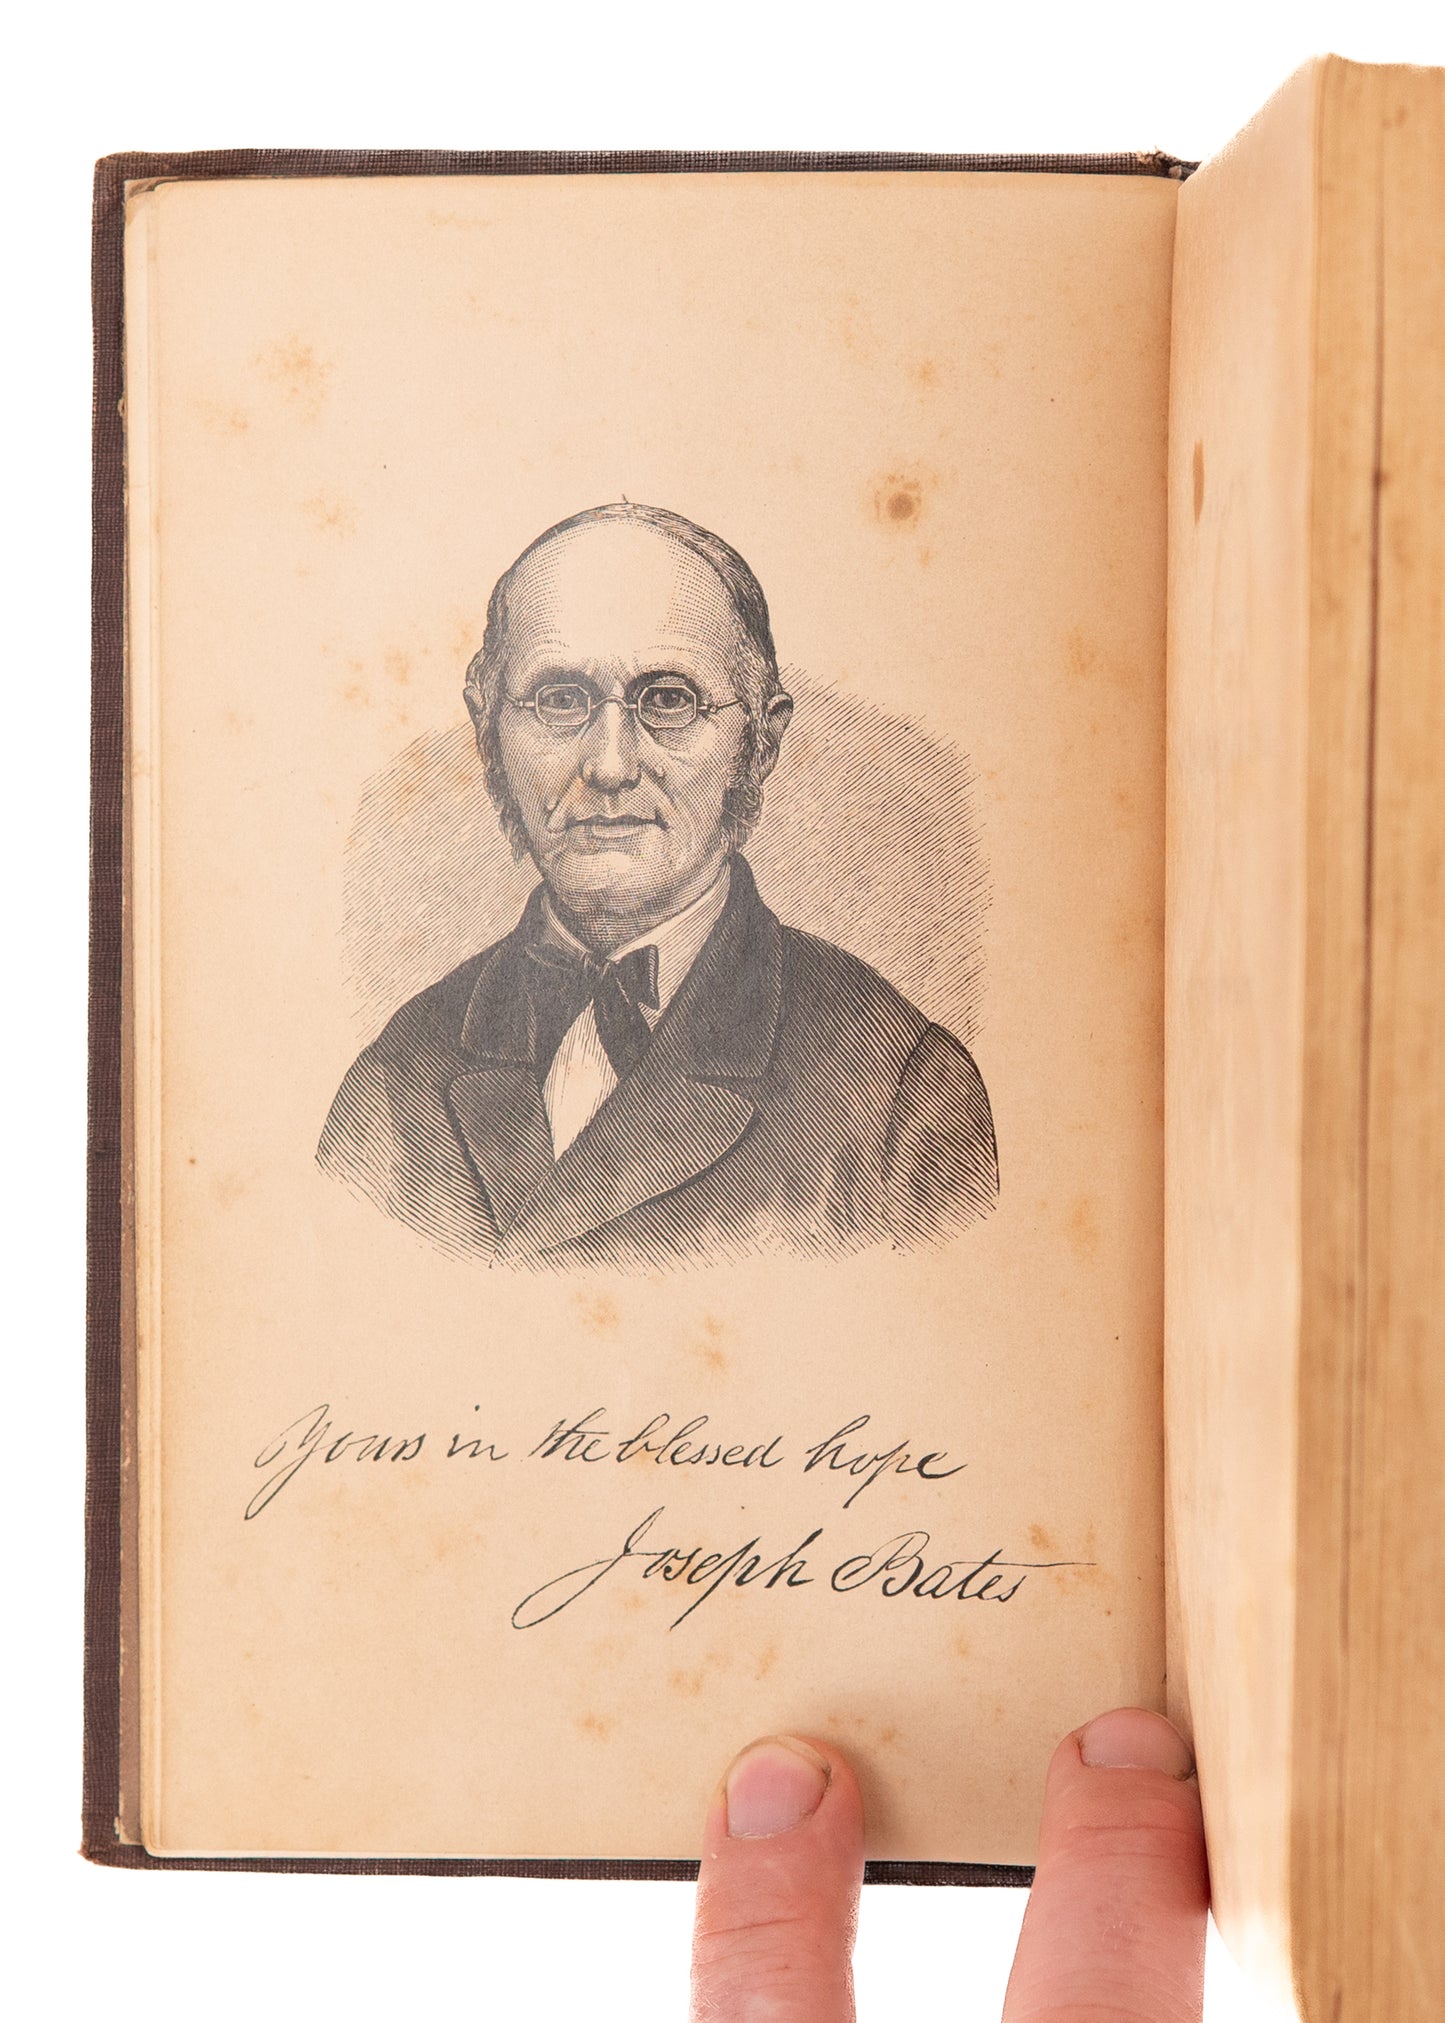 Yours in the blessed hope
Joseph Bates